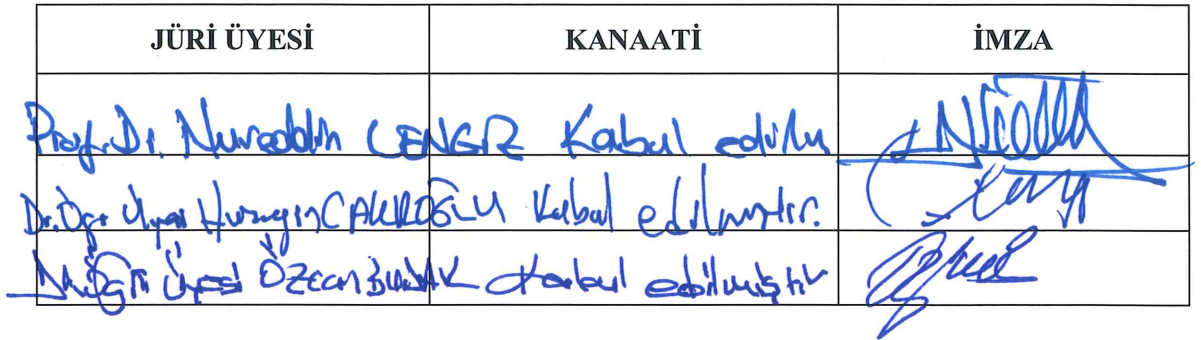 JÜRİ ÜYESİ KANAATİ İMZA
Prof. Dr. Nureddin CENGİZ Kabul edildi
Dr. Öğr. Üyesi Huseyin ÇAKIROĞLU Kabul edilmiştir.
Dr. Öğr. Üyesi ÖZCAN BUDAK Kabul edilmiştir